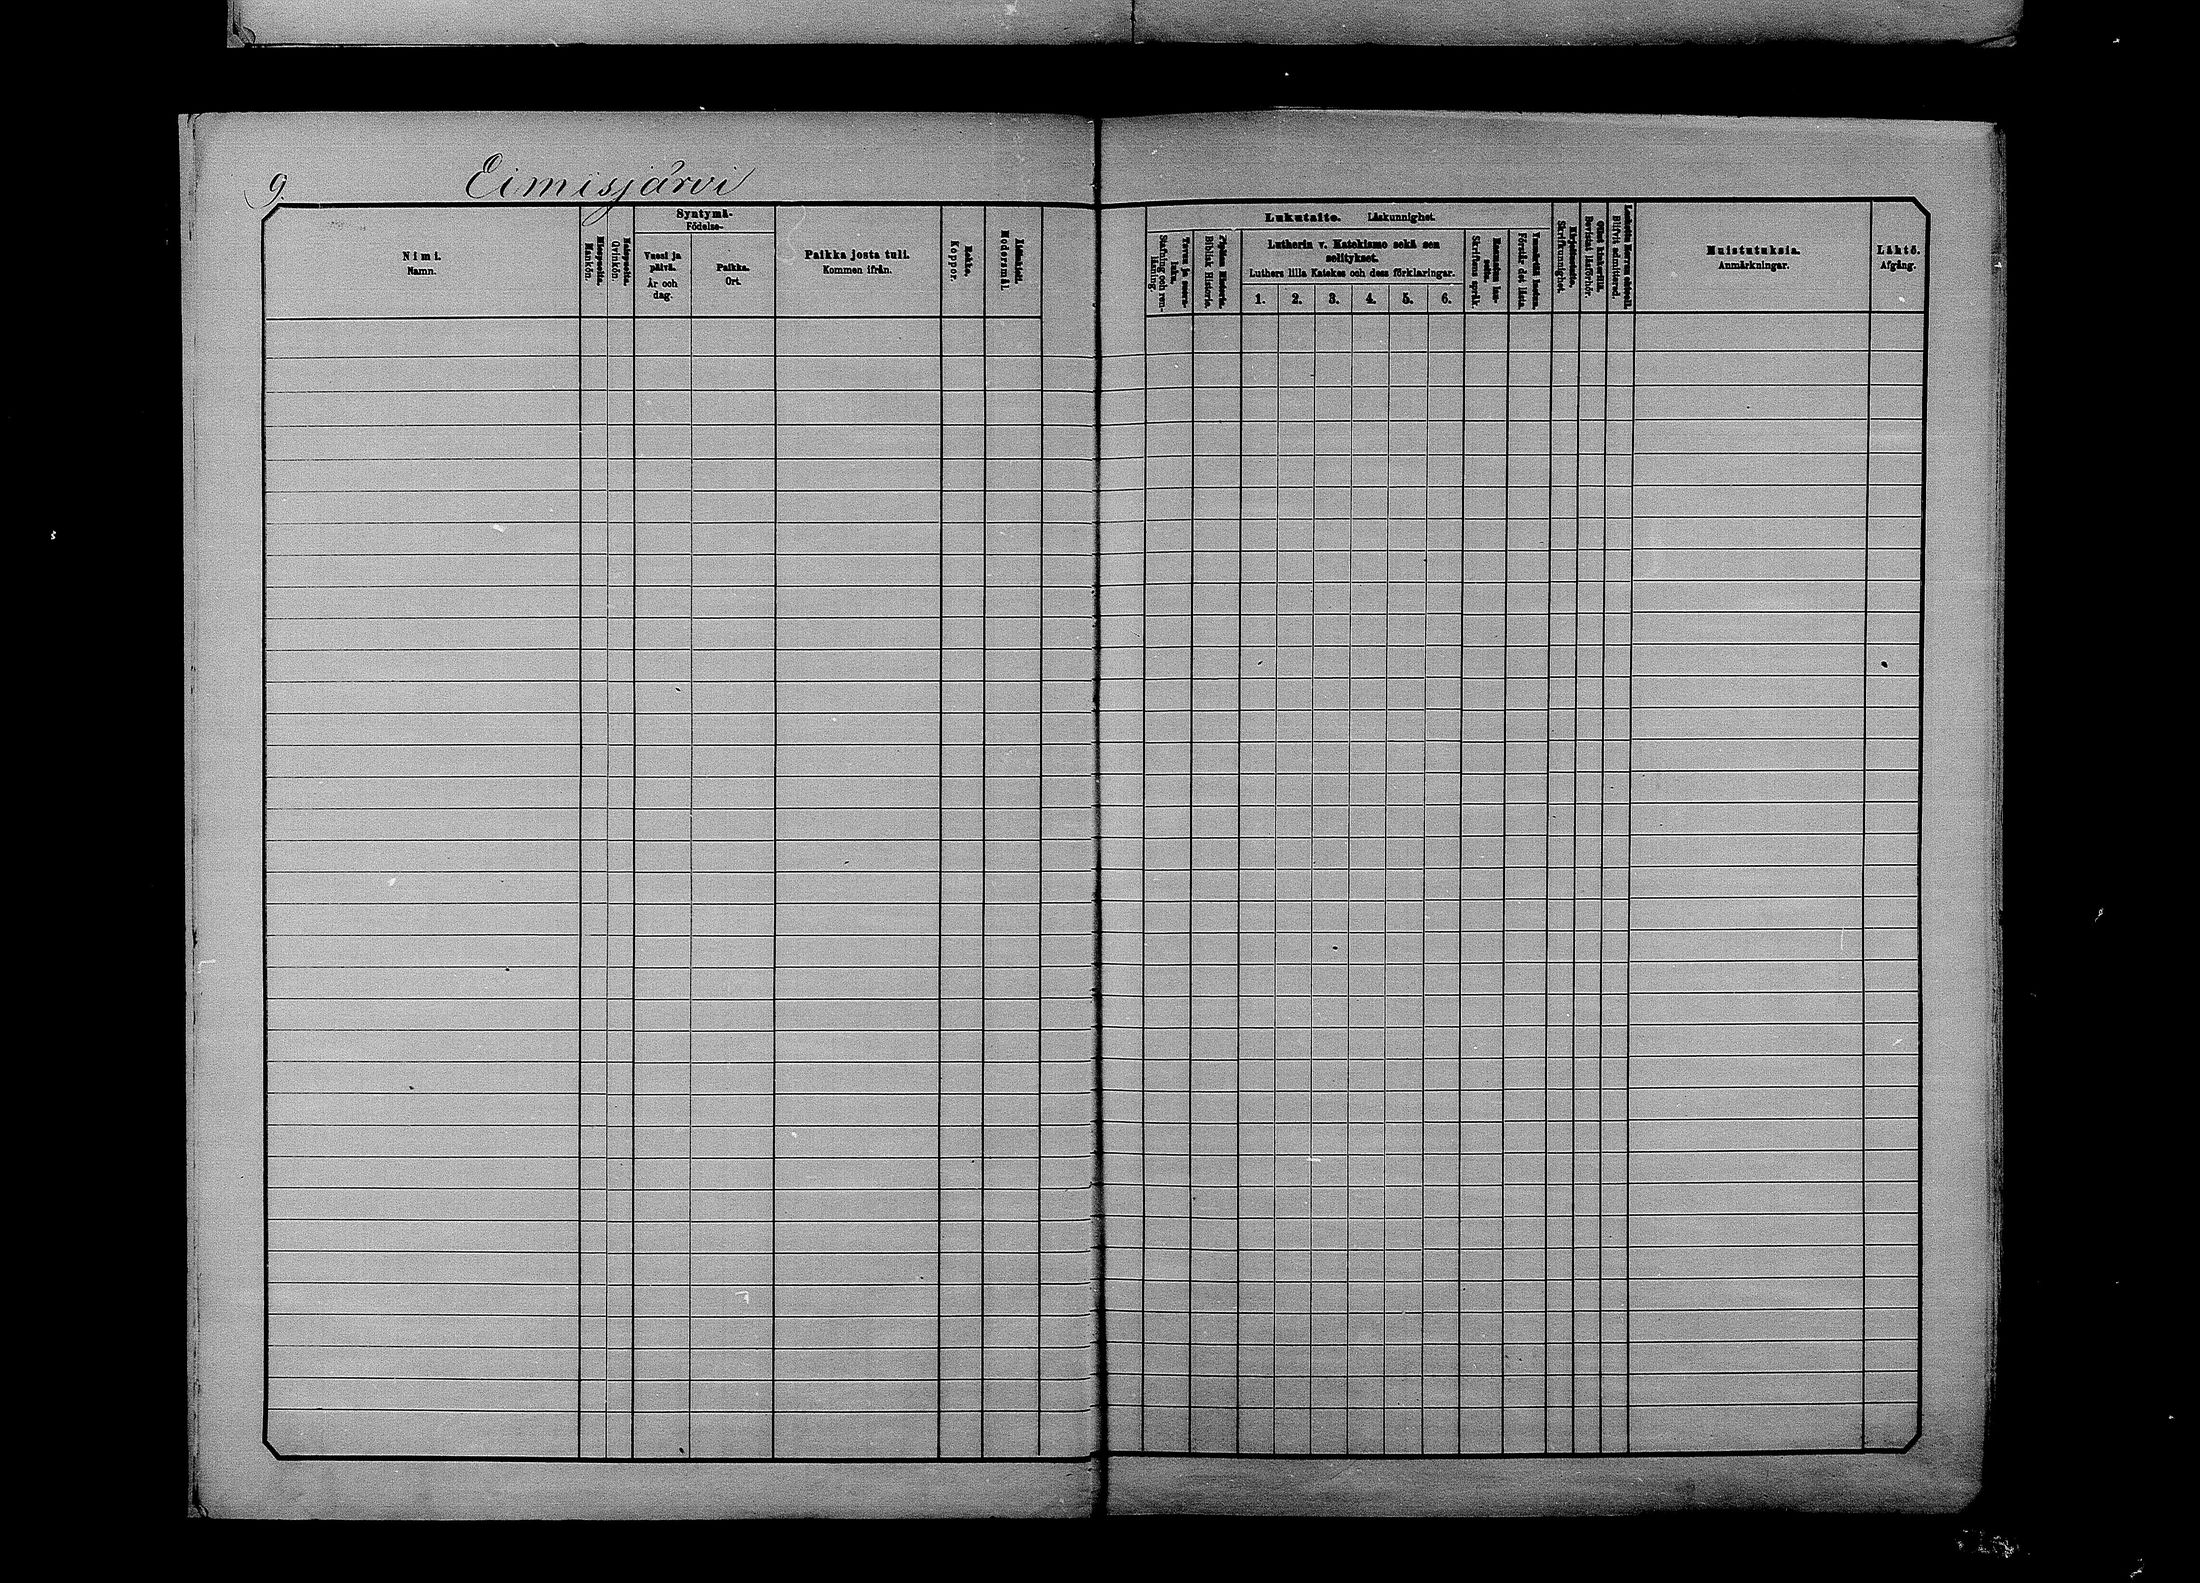 9.
Eimisjärvi
Nimi.
Namn.
Miespuolia.
Mankön.
Vaispuolia.
Qvinkön.
Syntymä-
Födelse-
Vuosi ja
päivä.
År och
dag.
Paikka.
Ort.
Paikka josta tuli.
Kommen ifrån.
Rokko.
Koppor.
Äidinkieli.
Modersmål.
Lukutaito. Läskunnighet.
Tavuu ja suora-
luku.
Stafning och ren-
läsning.
Piplian Historia.
Biblisk Historie.
Lutherin v. Katekismo sekä sen
selitykset.
Luthers lilla Katekes och dess förklaringar.
1. 2. 3. 4. 5. 6.
Raamatun lau-
seita.
Skriftens språk.
Ymmärtää luetun.
Förstår det lästa.
Kirjoitustaito.
Skrifkunnighet.
Ollut kinkerillä.
Bevistat läsförhör.
Blifvit admitterad.
Muistutuksia.
Anmärkningar.
Lähtö.
Afgång.